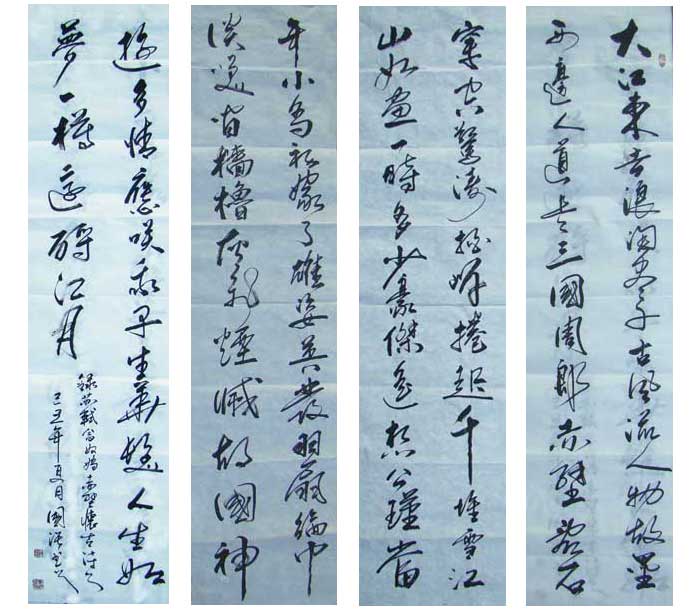 大江東去浪淘盡千古風流人物故壘
西邊人道是三國周郎赤壁亂石
穿空驚濤拍岸捲起千堆雪江
山如畫一時多少豪傑遙想公瑾當
年小喬初嫁了雄姿英發羽扇綸巾
談笑間檣櫓灰飛煙滅故國神
遊多情應咲我早生華髮人生如
夢一樽還酹江月
錄蘇軾念奴嬌赤壁懷古詩
己丑年夏月國